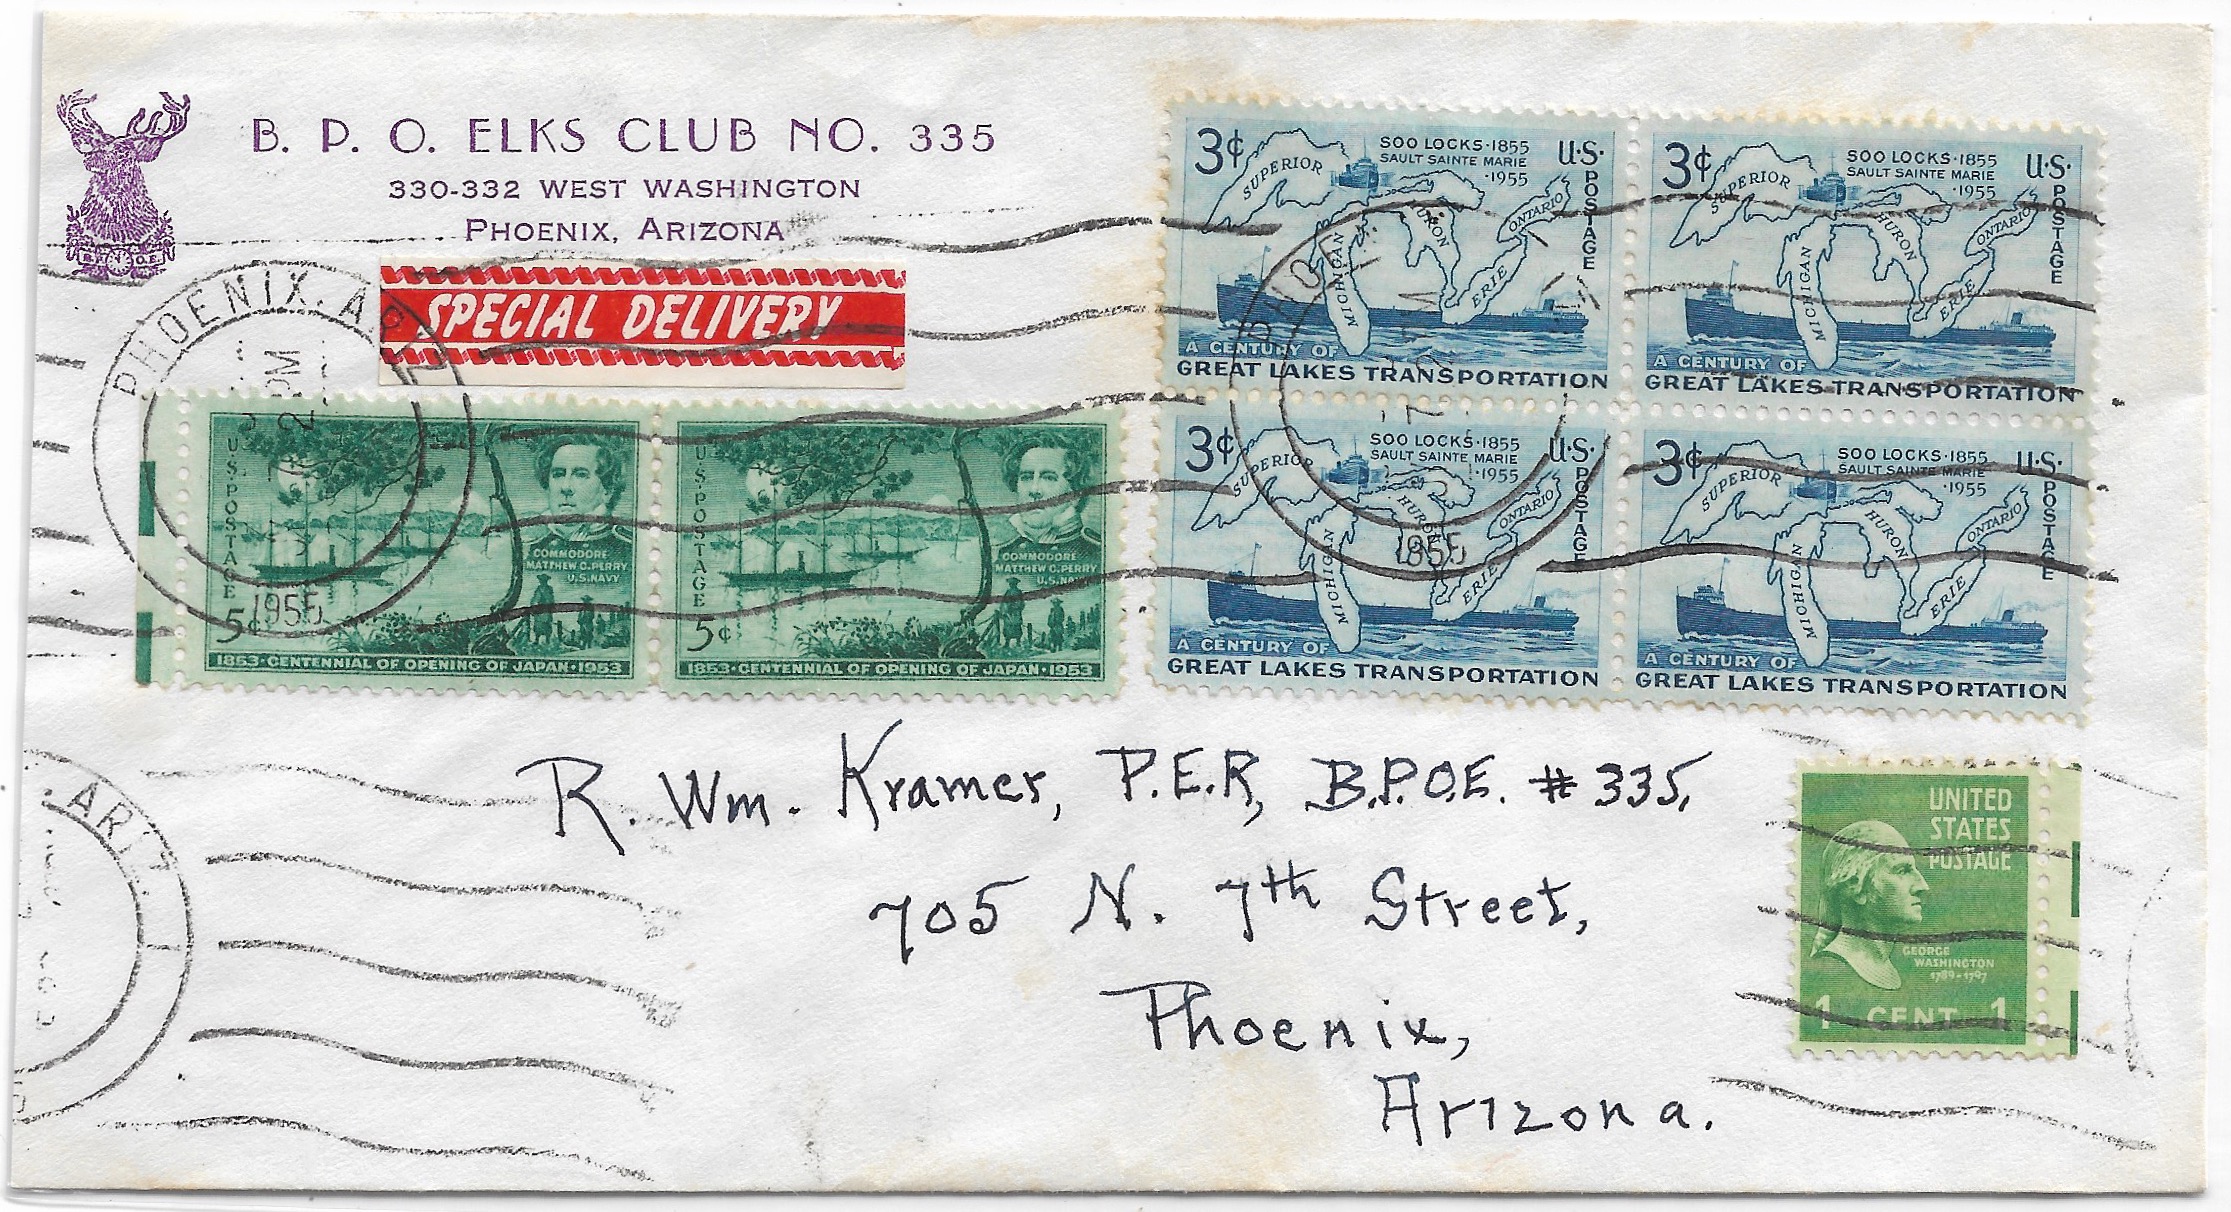 B. P. O. ELKS CLUB NO. 335
330-332 WEST WASHINGTON
PHOENIX, ARIZONA
B.P.O.E.
SPECIAL DELIVERY
PHOENIX, ARIZ.
2 PM
1955
U.S. POSTAGE
5¢
COMMODORE
MATTHEW C. PERRY
U.S. NAVY
1853·CENTENNIAL OF OPENING OF JAPAN·1953
U.S. POSTAGE
5¢
COMMODORE
MATTHEW C. PERRY
U.S. NAVY
1853·CENTENNIAL OF OPENING OF JAPAN·1953
3¢
SOO LOCKS·1855
SAULT SAINTE MARIE
·1955
U.S. POSTAGE
SUPERIOR
MICHIGAN
HURON
ERIE
ONTARIO
A CENTURY OF
GREAT LAKES TRANSPORTATION
3¢
SOO LOCKS·1855
SAULT SAINTE MARIE
·1955
U.S. POSTAGE
SUPERIOR
MICHIGAN
HURON
ERIE
ONTARIO
A CENTURY OF
GREAT LAKES TRANSPORTATION
3¢
SOO LOCKS·1855
SAULT SAINTE MARIE
·1955
U.S. POSTAGE
SUPERIOR
MICHIGAN
HURON
ERIE
ONTARIO
A CENTURY OF
GREAT LAKES TRANSPORTATION
3¢
SOO LOCKS·1855
SAULT SAINTE MARIE
·1955
U.S. POSTAGE
SUPERIOR
MICHIGAN
HURON
ERIE
ONTARIO
A CENTURY OF
GREAT LAKES TRANSPORTATION
1955
R. Wm. Kramer, P.E.R, B.P.O.E. # 335,
705 N. 7th Street,
Phoenix,
Arizona.
UNITED
STATES
POSTAGE
GEORGE
WASHINGTON
1789-1797
1 CENT 1
ARIZ.